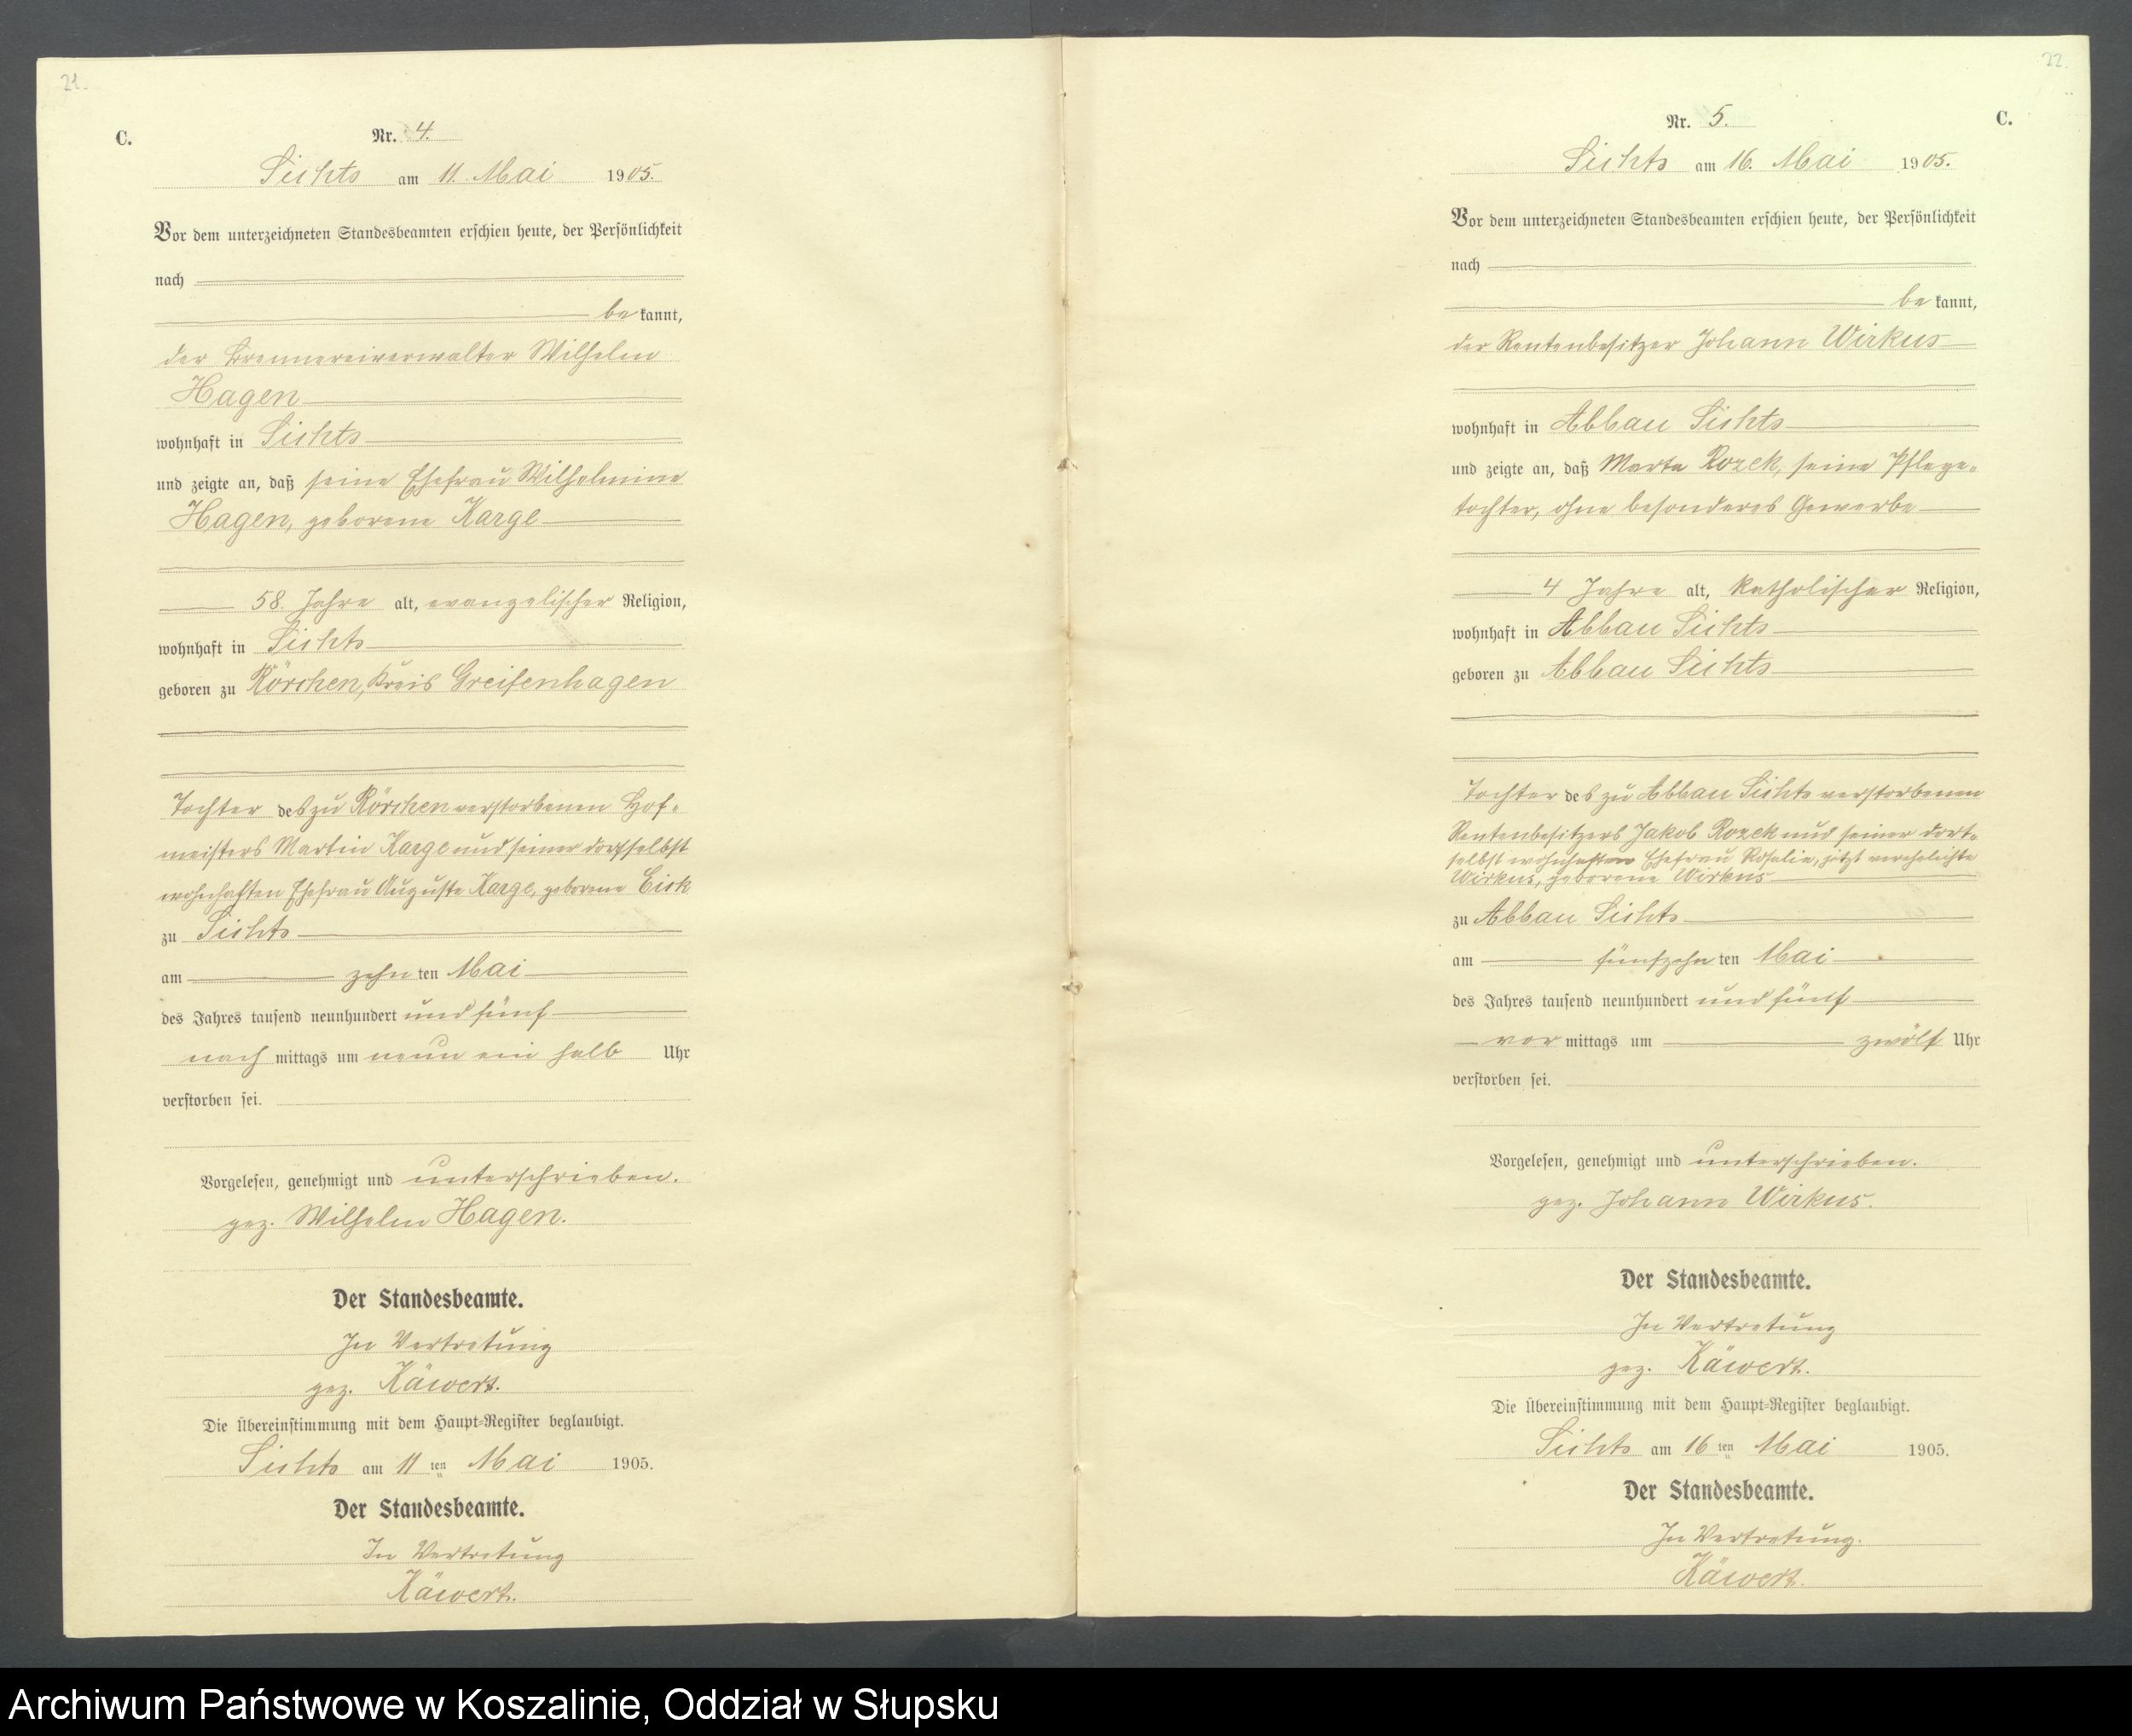 21.
C.
Nr. 4.
Sichts am 11. Mai 1905.
Vor dem unterzeichneten Standesbeamten erschien heute, der Persönlichkeit
nach
bekannt,
der Brennereiverwalter Wilhelm
Hagen
wohnhaft in Sichts
und zeigte an, daß seine Ehefrau Wilhelmine
Hagen, geborene Karge
58 Jahre alt, evangelischer Religion,
wohnhaft in Sichts
geboren zu Rörchen, Kreis Greifenhagen
Tochter des zu Rörchen verstorbenen Hof-
meisters Martin Karge und seiner dortselbst
wohnhaften Ehefrau Auguste Karge, geborene
zu Sichts
am zehnten Mai
des Jahres tausend neunhundert und fünf
nachmittags um neun ein halb Uhr
verstorben sei.
Vorgelesen, genehmigt und unterschrieben.
gez. Wilhelm Hagen.
Der Standesbeamte.
In Vertretung
gez. Käwert.
Die Übereinstimmung mit dem Haupt-Register beglaubigt.
Sichts am 11ten Mai 1905.
Der Standesbeamte.
In Vertretung
Käwert.
22.
C.
Nr. 5.
Sichts am 16. Mai 1905.
Vor dem unterzeichneten Standesbeamten erschien heute, der Persönlichkeit
nach
bekannt,
der Rentenbesitzer Johann Wirkus
wohnhaft in Abbau Sichts
und zeigte an, daß Marta Rozek, seine Pflege-
tochter, ohne besonderes Gewerbe
4 Jahre alt, katholischer Religion,
wohnhaft in Abbau Sichts
geboren zu Abbau Sichts
Tochter des zu Abbau Sichts verstorbenen
Rentenbesitzers Jakob Rozek und seiner dort-
selbst wohnhaften Ehefrau Rosalie, jetzt verehelichte
Wirkus, geborene Wirkus
zu Abbau Sichts
am fünfzehnten Mai
des Jahres tausend neunhundert und fünf
vormittags um zwölf Uhr
verstorben sei.
Vorgelesen, genehmigt und unterschrieben.
gez. Johann Wirkus.
Der Standesbeamte.
In Vertretung
gez. Käwert.
Die Übereinstimmung mit dem Haupt-Register beglaubigt.
Sichts am 16ten Mai 1905.
Der Standesbeamte.
In Vertretung.
Käwert.
Archiwum Państwowe w Koszalinie, Oddział w Słupsku